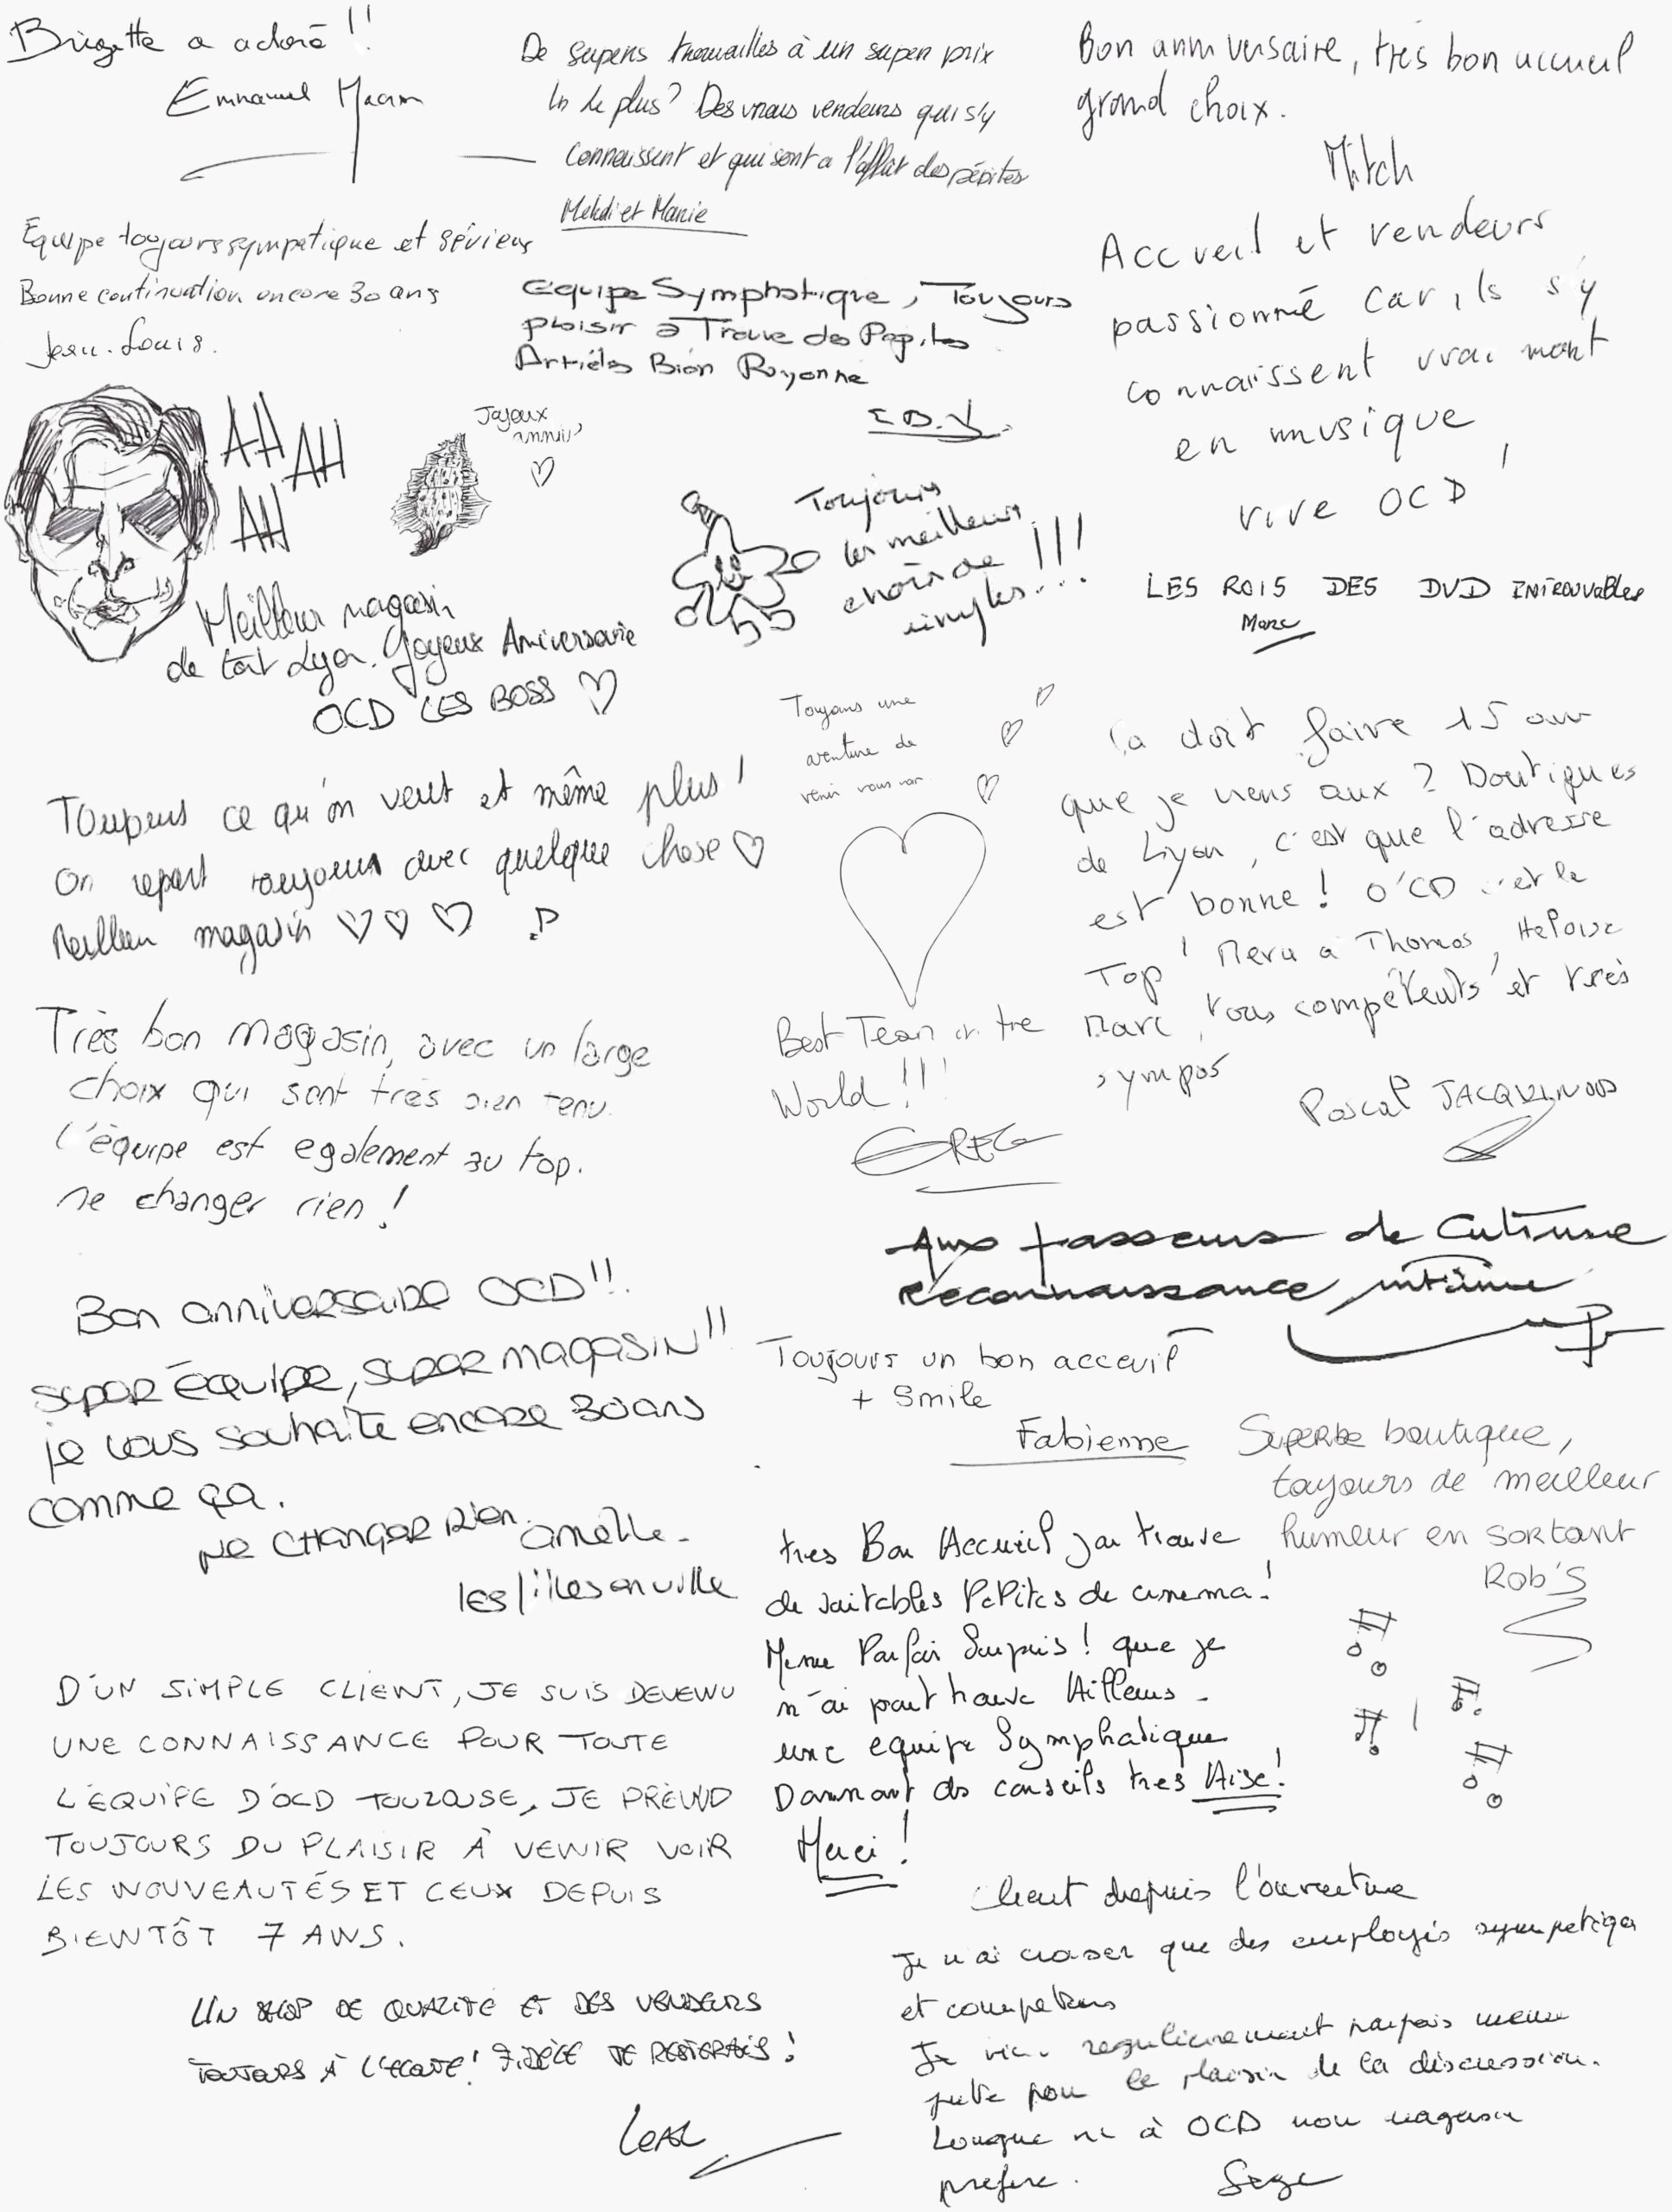 Brigitte a adoré !!
Emmanuel Macron
De supers trouvailles à un super prix
Un le plus? Des vrais vendeurs qui s'y
connaissent et qui sont a l'affut des pépites
Mehdi et Marie
Bon anniversaire, très bon accueil
grand choix.
Mitch
Equipe toujours sympatique et sérieux
Bonne continuation encore 30 ans
Jean-Louis.
Equipe Symphatique, Toujours
plaisir a Trouve des Pepites
Articles Bien Rayonne
Accueil et vendeurs
passionné car ils s'y
connaissent vraiment
en musique
vive OCD !
AH AH
AH
Joyeux
anniv'
Meilleur magasin
de tout Lyon. Joyeux Aniversaire
OCD LES BOSS
Toujours
les meilleurs
choix de
vinyles...!!!
LES ROIS DES DVD INTROUVABLES
Marc
Toujours une
aventure de
venir vous voir
Toujours ce qu'on veut et même plus !
On repart toujours avec quelque chose
Meilleur magasin
Ça doit faire 15 ans
que je viens aux 2 Boutiques
de Lyon, c'est que l'adresse
est bonne ! O'CD c'est le
Top ! Merci à Thomas, Heloise
Marc, tous compétents et très
sympas
Pascal JACQUINOD
Best Team in the
World !!!
GREG
Très bon magasin, avec un large
choix qui sont très bien tenu.
L'équipe est egalement au top.
ne changer rien !
Aux passeurs de Culture
reconnaissance infinie
Bon anniversaire OCD!!
super équipe, super magasin!!
je vous souhaite encore 30 ans
comme ça.
ne changer rien.
Armelle.
les filles en ville
Toujours un bon acceuil
+ Smile
Fabienne
Superbe boutique,
toujours de meilleur
humeur en sortant
Rob'S
tres Bon Accueil j'ai trouve
de vairtables PePites de cinema!
Meme Parfois Surpris! que je
n'ai pas trouve Ailleurs -
une equipe Symphatique
Donnant des conseils tres Aise!
Merci !
D'UN SIMPLE CLIENT, JE SUIS DEVENU
UNE CONNAISSANCE POUR TOUTE
L'ÉQUIPE D'OCD TOULOUSE, JE PREND
TOUJOURS DU PLAISIR À VENIR VOIR
LES NOUVEAUTÉS ET CEUX DEPUIS
BIENTÔT 7 ANS.
UN SHOP DE QUALITÉ ET DES VENDEURS
TOUJOURS À L'ECOUTE! FIDÈLE JE RESTERAIS!
Client depuis l'ouverture
Je n'ai croiser que des employés sympatiques
et competens
Je viens regulierement parfois meme
juste pour le plaisir de la discussion.
Longue vie à OCD mon magasin
prefere.
Serge